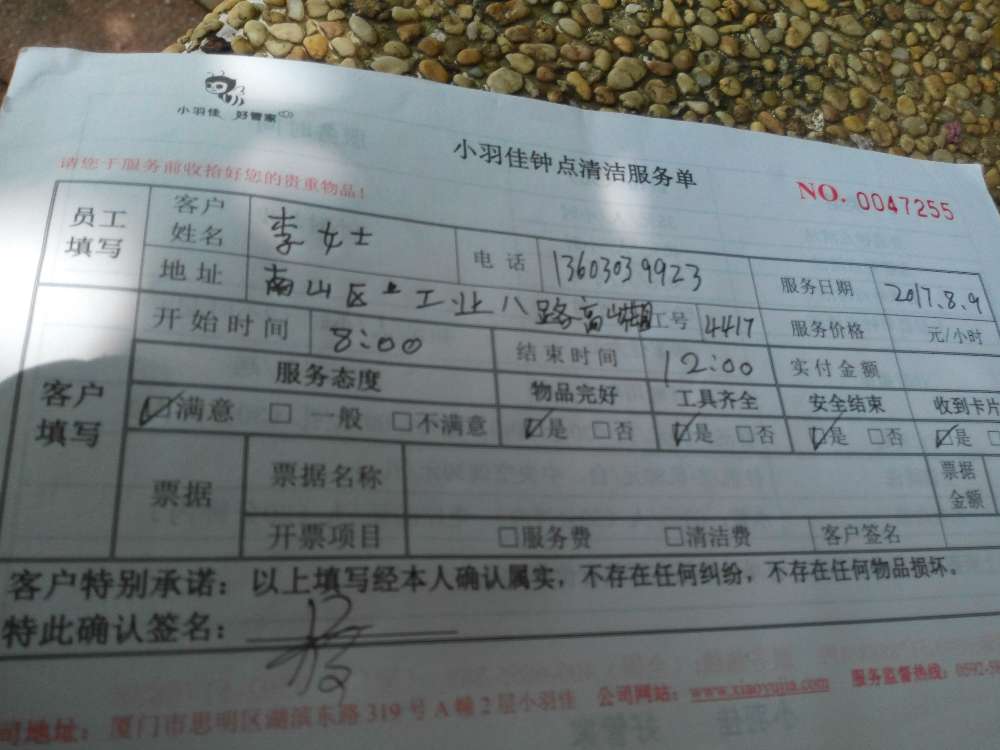 小羽佳 好管家
小羽佳钟点清洁服务单
请您于服务前收拾好您的贵重物品!
NO. 0047255
员工填写 客户姓名 李女士 电话 13603039923 服务日期 2017.8.9
地址 南山区 工业八路高 工号 4417 服务价格 元/小时
客户填写 开始时间 8:00 结束时间 12:00 实付金额
服务态度 物品完好 工具齐全 安全结束 收到卡片
☑满意 □一般 □不满意 ☑是 □否 ☑是 □否 ☑是 □否 ☑是
票据 票据名称 票据金额
开票项目 □服务费 □清洁费 客户签名
客户特别承诺:以上填写经本人确认属实,不存在任何纠纷,不存在任何物品损坏。
特此确认签名:
司地址:厦门市思明区湖滨东路319号A幢2层小羽佳 公司网站:www.xiaoyujia.com 服务监督热线:0592-5